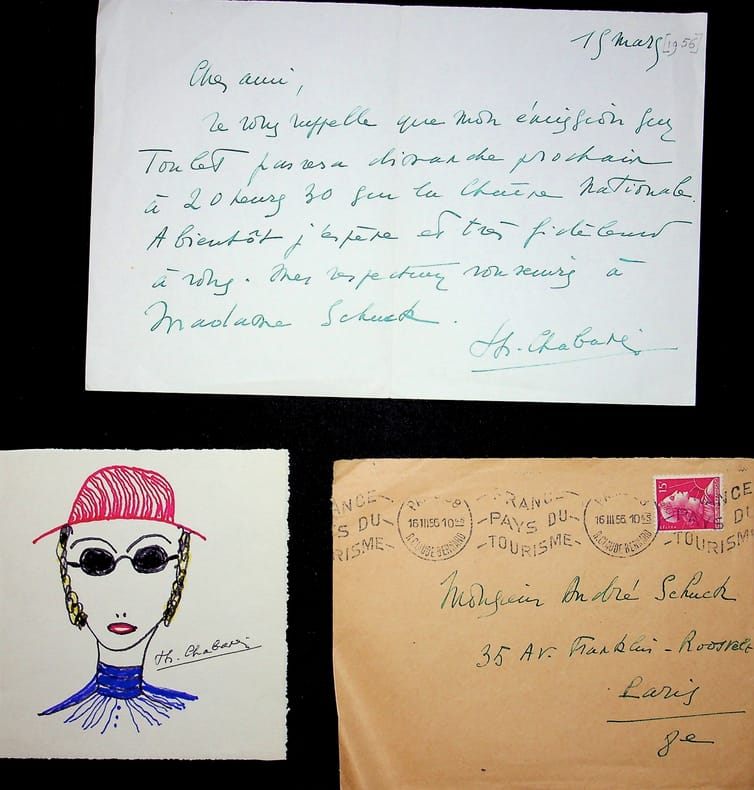 15 mars [1956]
Cher ami,
Je vous rappelle que mon émission sur
Toulet passera dimanche prochain
à 20 heures 30 sur la Chaîne Nationale.
A bientôt j'espère et très fidèlement
à vous. Mes respectueux souvenirs à
Madame Schuck.
Th. Chabanis
Th. Chabanis
ANCE
S DU
RISME
PARIS
16 III 56 10
R. CLAUDE BERNARD
FRANCE
PAYS DU
TOURISME
16 III 56 10
R. CLAUDE BERNARD
15
DU
TOURISME
Monsieur André Schuck
35 Av. Franklin-Roosvelt
Paris
8e